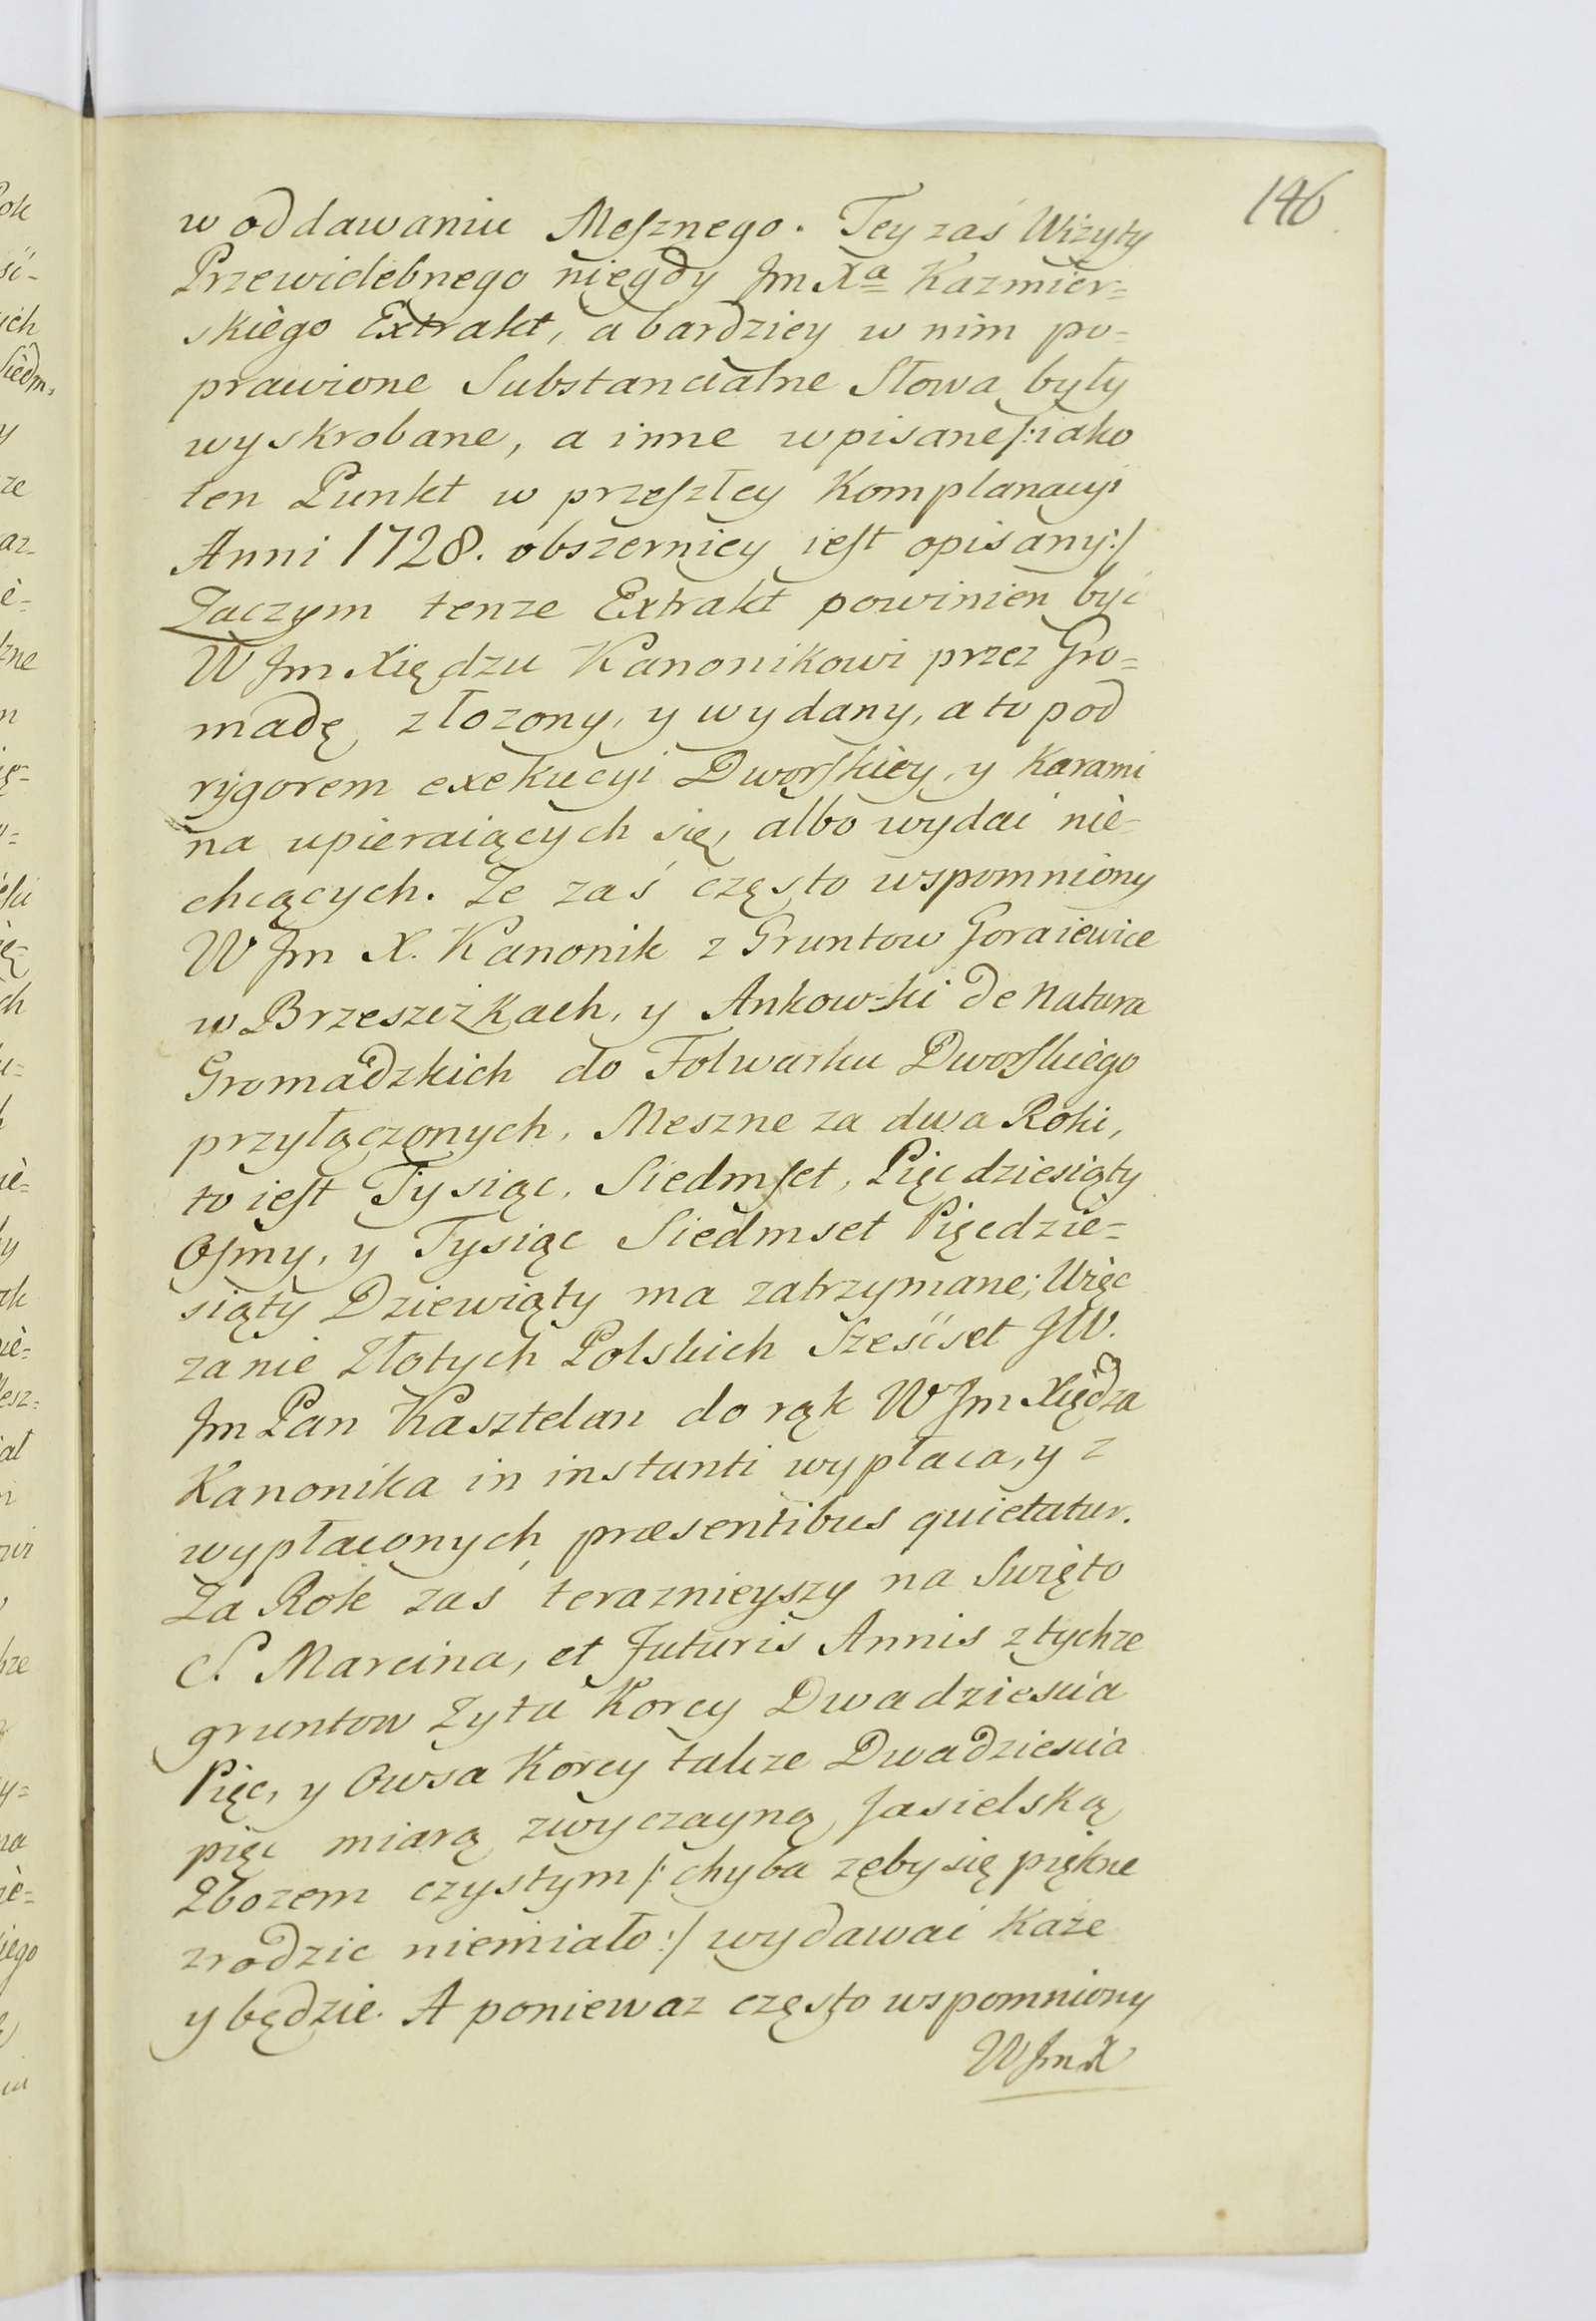 146
w oddawaniu Mesznego. Tey zaś Wizyty
Przewielebnego niegdy Jm Xa Kazmier=
skiego Extrakt, a bardziey w nim po=
prawione Substancialne Słowa były
wyskrobane, a inne wpisane /: iako
ten Punkt w przeszłey Komplanacyi
Anni 1728. obszerniey iest opisany :/
Zaczym tenze Extrakt powinien być
W Jm Xiędzu Kanonikowi przez Gro=
madę złozony, y wydany, a to pod
rygorem exekucyi Dworskiey, y Karami
na upieraiących się, albo wydać nie=
chcących. Ze zaś często wspomniony
W Jm X. Kanonik z Gruntow Goraiewice
w Brzeszczkach, y Ankowski de Natura
Gromadzkich do Folwarku Dworskiego
przyłączonych, Meszne za dwa Roki,
to iest Tysiąc, Siedmset, Pięcdziesiąty
Osmy, y Tysiąc Siedmset Pięcdzie=
siąty Dziewiąty ma zatrzymane; Więc
za nie Złotych Polskich Sześćset JW.
Jm Pan Kasztelan do rąk W Jm Xiędza
Kanonika in instanti wypłaca, y z
wypłaconych præsentibus quietatur.
Za Rok zaś teraznieyszy na Swięto
S. Marcina, et Futuris Annis z tychze
gruntow Zyta Korcy Dwadziescia
Pięc, y Owsa Korcy takze Dwadziescia
pięć miarą zwyczayną Jasielską
Zbozem czystym /: chyba zęby się piękne
zrodzic niemiało :/ wydawać Kaze
y będzie. A poniewaz często wspomniony
W Jm X